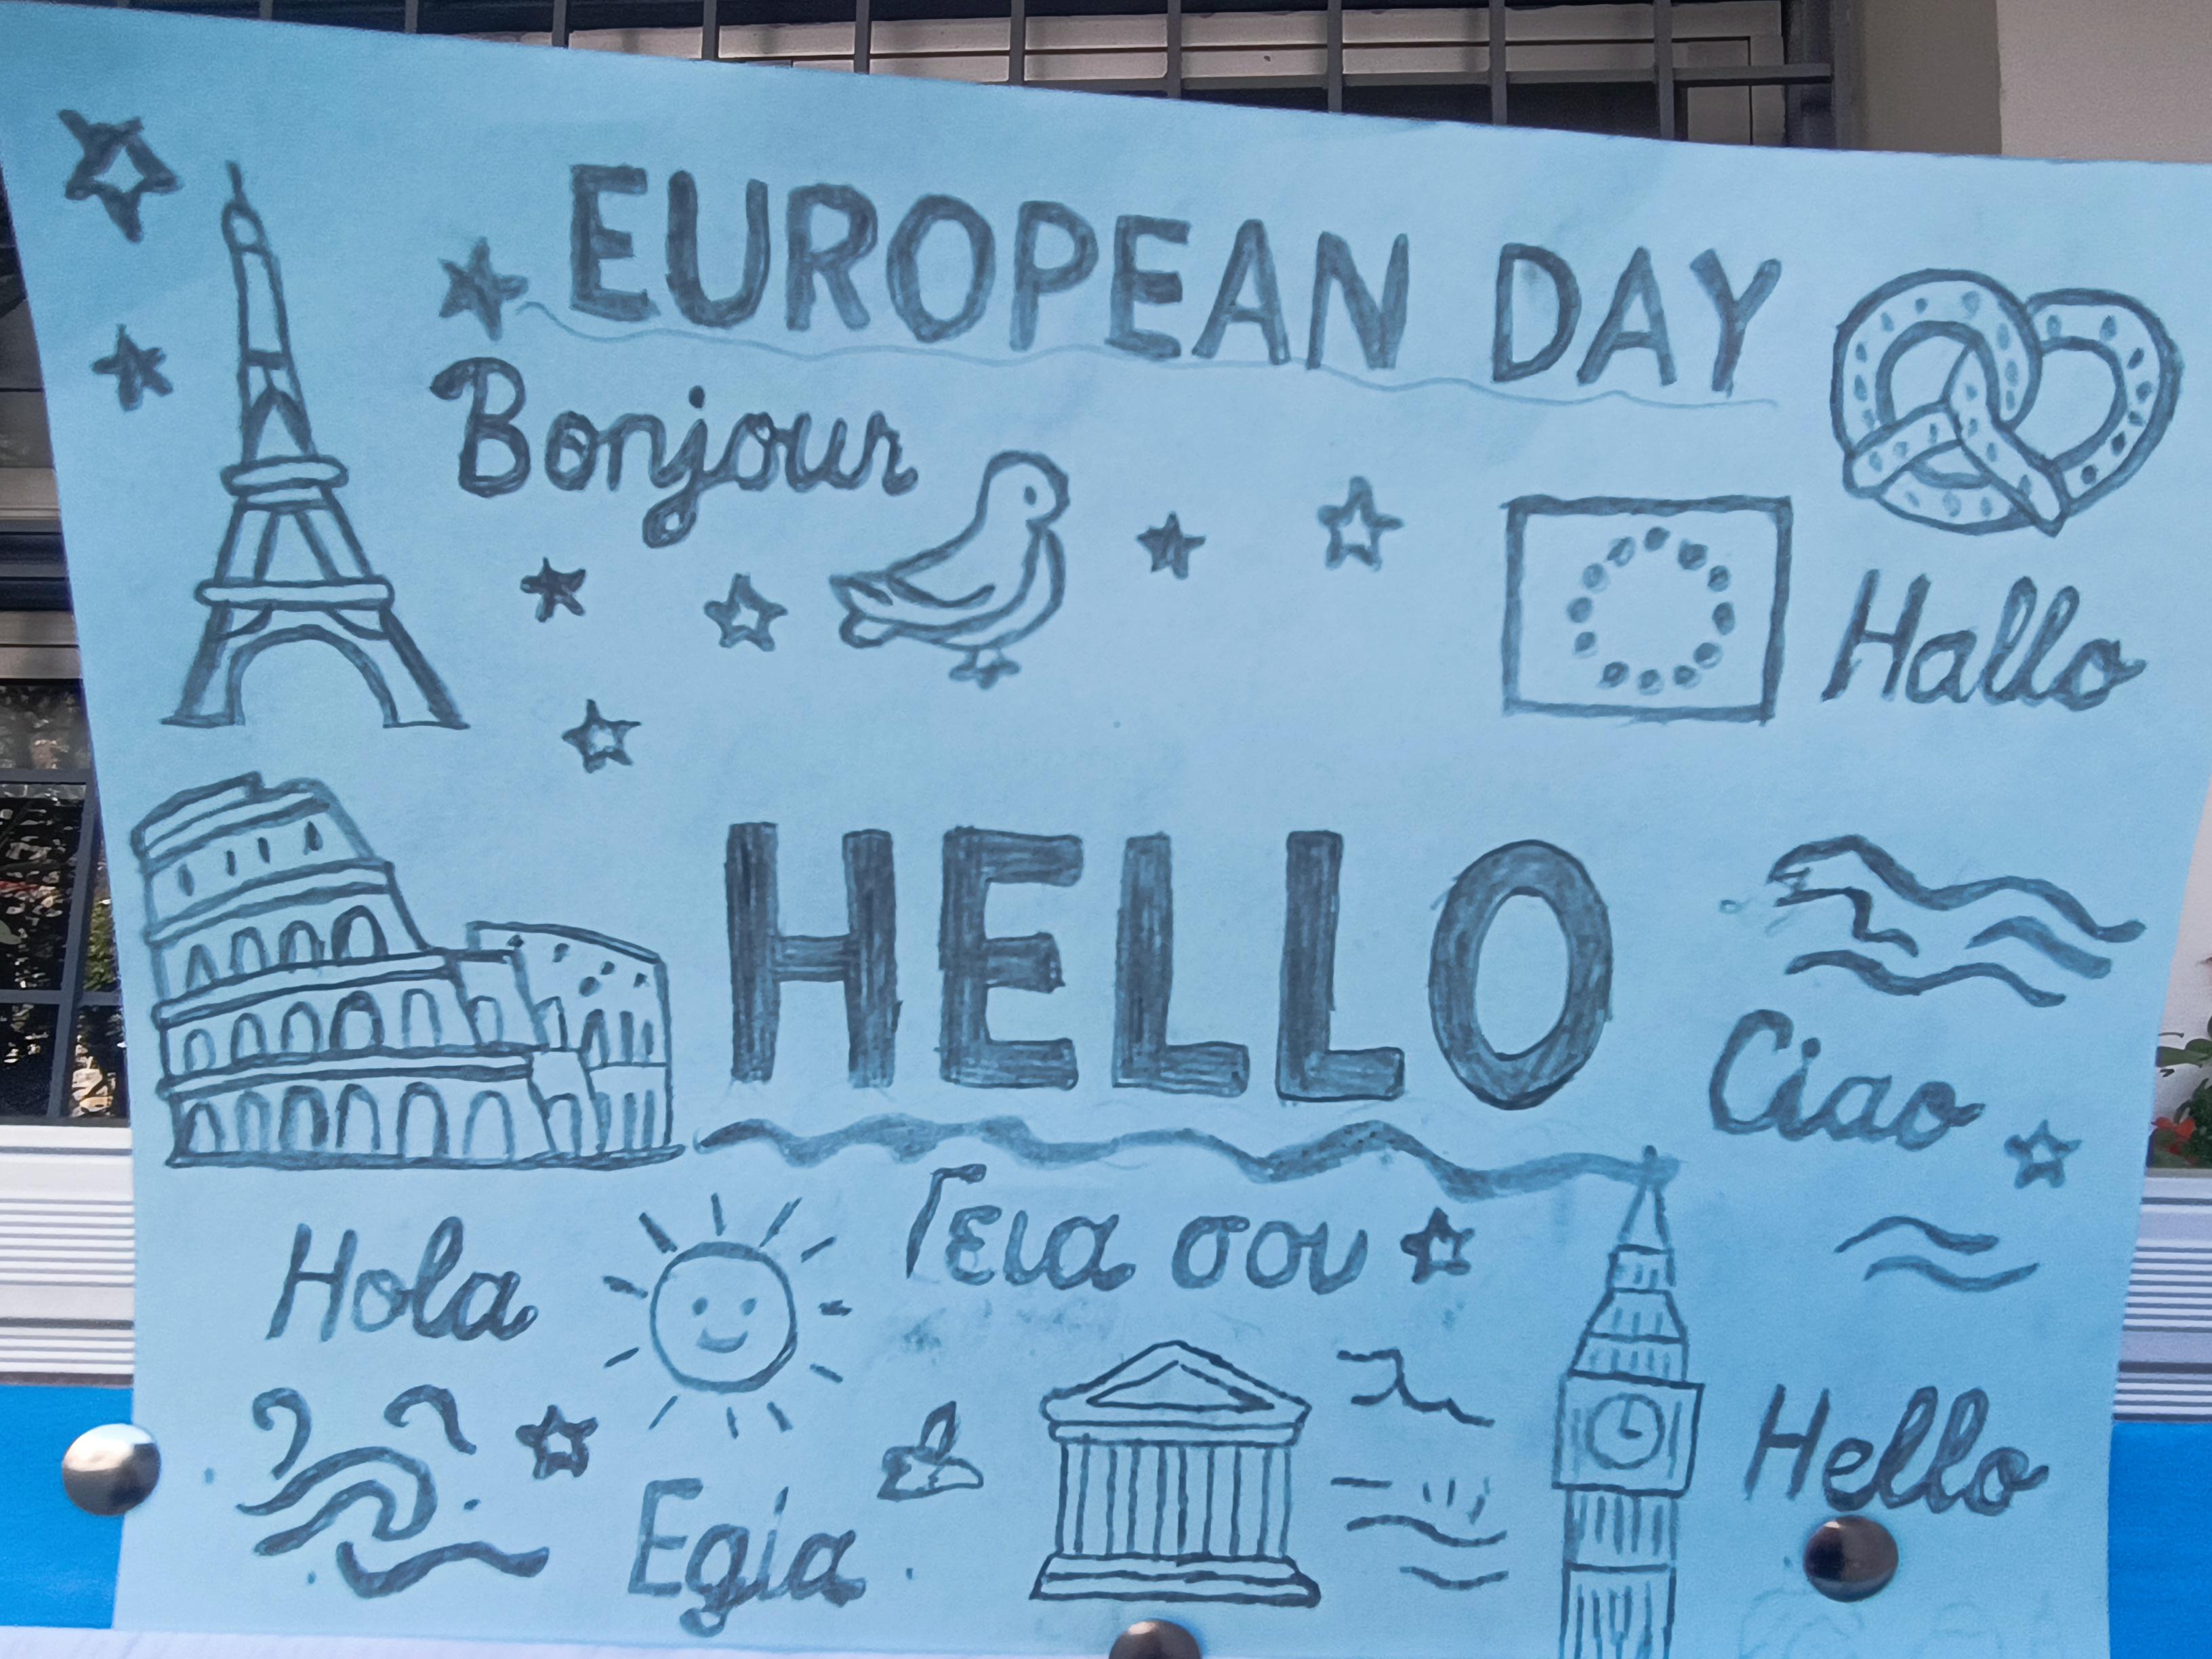 EUROPEAN DAY
Bonjour
Hallo
HELLO
Ciao
Γεια σου
Hola
Hello
Egia